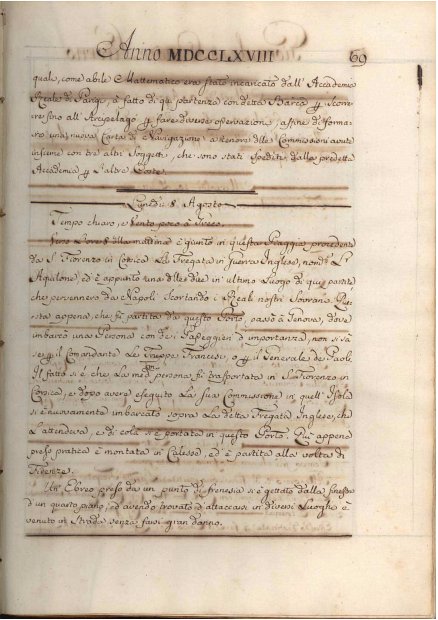 Anno MDCCLXVIII 69
quale, come abile Mattematico era stato incaricato dall' Accademia
Reale di Parigi, à fatto di quì partenza con detta Barca p scorre
re fino all' Arcipelago p fare diverse osservazioni, affine di forma
re una nuova Carta di Navigazione a tenore delle Commissioni avute
insieme con tre altri Soggetti, che sono stati spediti dalla predetta
Accademia p l'altre Coste.
Lunedì 8. Agosto
Tempo chiaro, e Vento poco à Sireco
Vero l'ore 8 della mattina è giunto in questa Piaggia procedente
da S. Fiorenzo in Corsica La Fregata in guerra Inglese, nom.ta L'
Aquilone, ed è appunto una delle due in ultimo Luogo di quà partite
che pervennero da Napoli scortando i Reali nostri Sovrani. Que
sta appena, che fù partita da questo Porto, passò à Genova, dove
imbarcò una Persona con de' Papeggieri d'importanza, non si sà
se p il Comandante Le Truppe Francesi, o p il Generale de Paoli.
Il fatto si è che La med.ma persona fù trasportata in S. Fiorenzo in
Corsica, e dopo avere eseguito La sua Commissione in quell' Isola
si è nuovamente imbarcato sopra La detta Fregata Inglese, che
L'attendeva, e di colà si è portata in questo Porto. Quì appena
preso pratica è montata in Calesse, ed è partita alla volta di
Firenze.
Un Ebreo preso da un punto di frenesia si è gettato dalla finestra
d'un quarto piano, ed avendo trovato d'attaccarsi in diversi Luoghi è
venuto in Strada senza farsi gran danno.